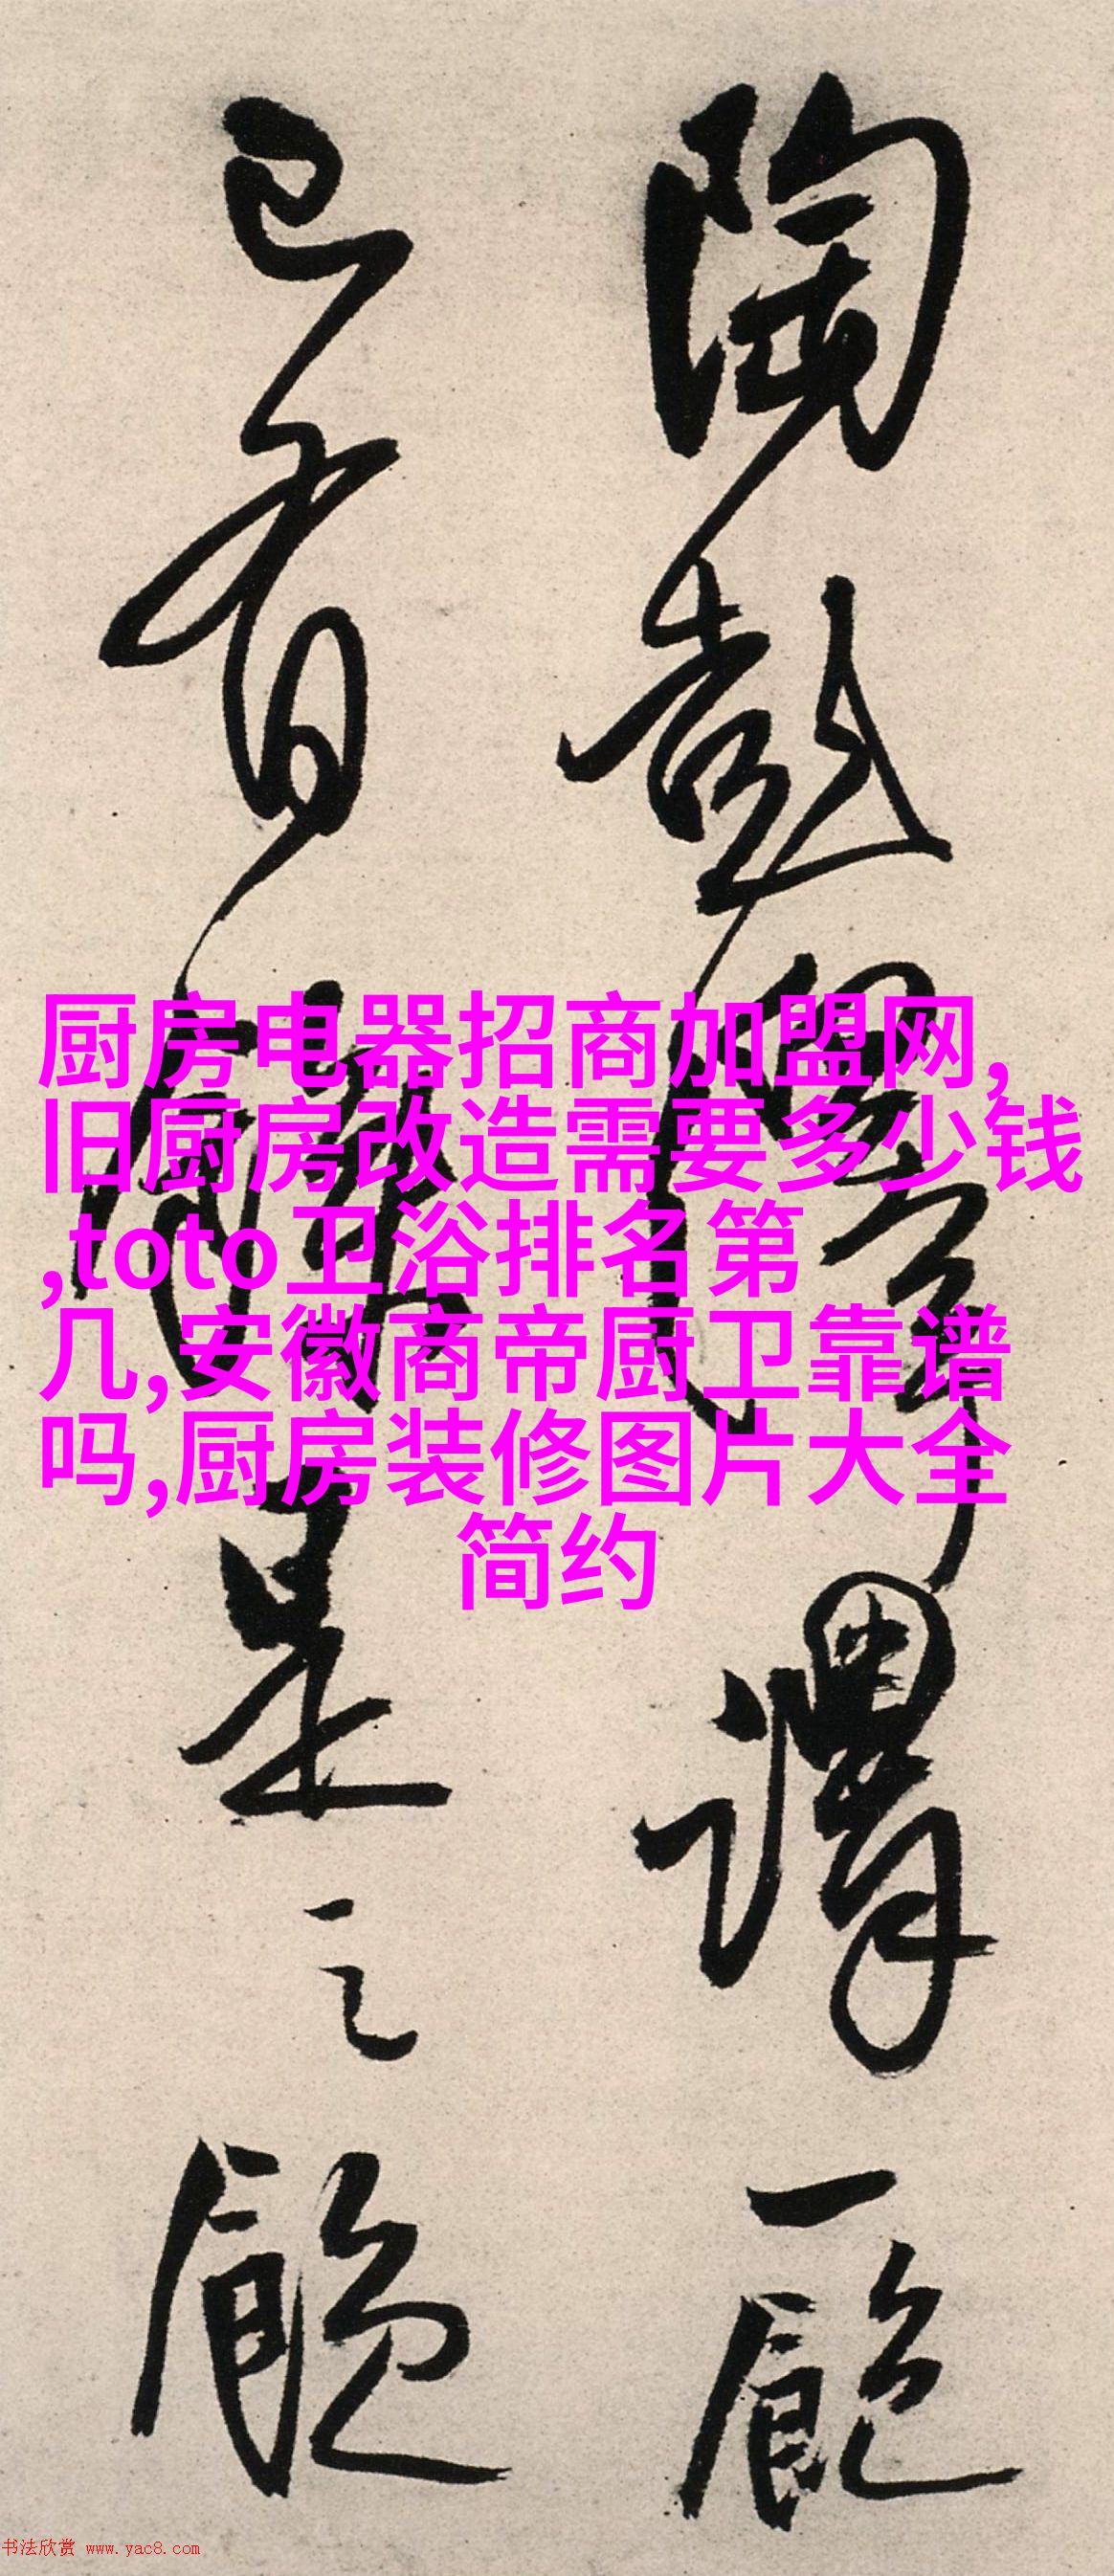 陶彭
谓一饱
已有
是之顾
厨房电器招商加盟网,
旧厨房改造需要多少钱
,toto卫浴排名第
几,安徽商帝厨卫靠谱
吗,厨房装修图片大全
简约
书法欣赏 www.yac8.com